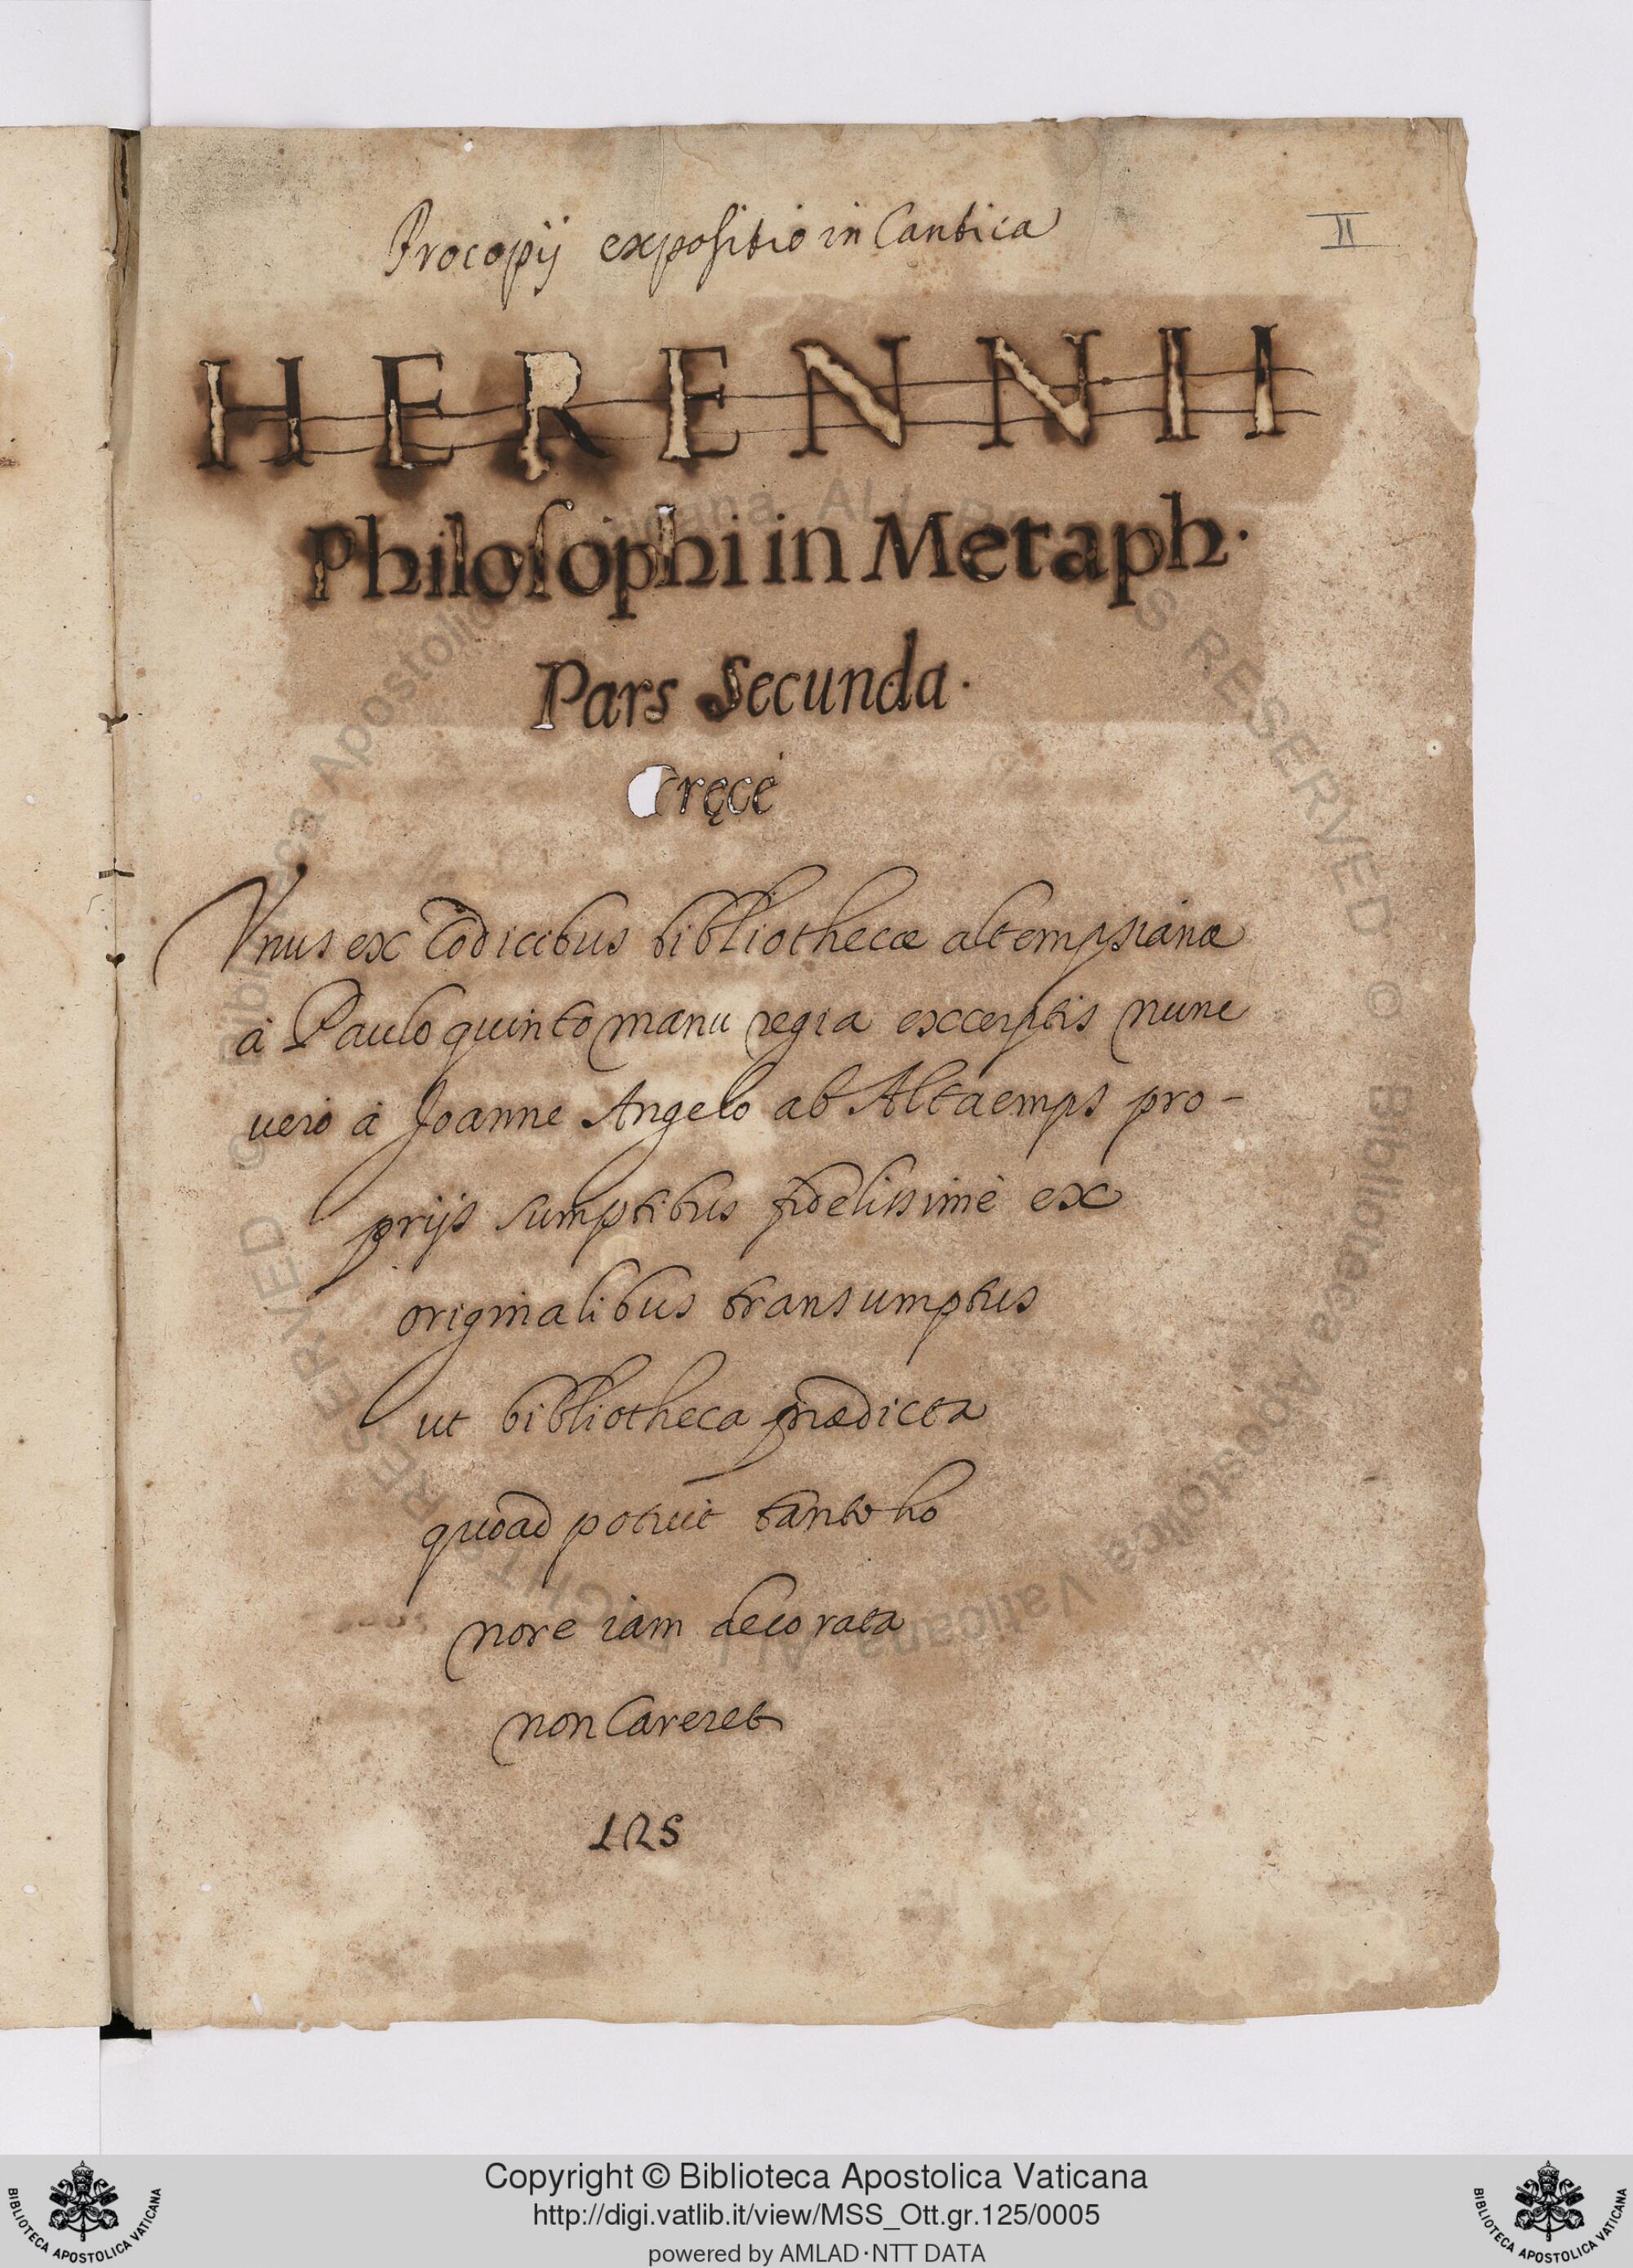 Procopij expositio in Cantica
II
HERENNII
Philosophi in Metaph.
Pars Secunda.
Gręcè
Vnus ex Codicibus bibliothecæ altempsianæ
à Paulo quinto manu regia excerptis nunc
uerò à Joanne Angelo ab Altaemps pro-
prijs sumptibus fidelissimè ex
originalibus transumptus
ut bibliotheca prædicta
quoad potuit tanto ho
nore iam decorata
non Careret
125
Copyright © Biblioteca Apostolica Vaticana
http://digi.vatlib.it/view/MSS_Ott.gr.125/0005
powered by AMLAD·NTT DATA
BIBLIOTECA APOSTOLICA VATICANA
BIBLIOTECA APOSTOLICA VATICANA